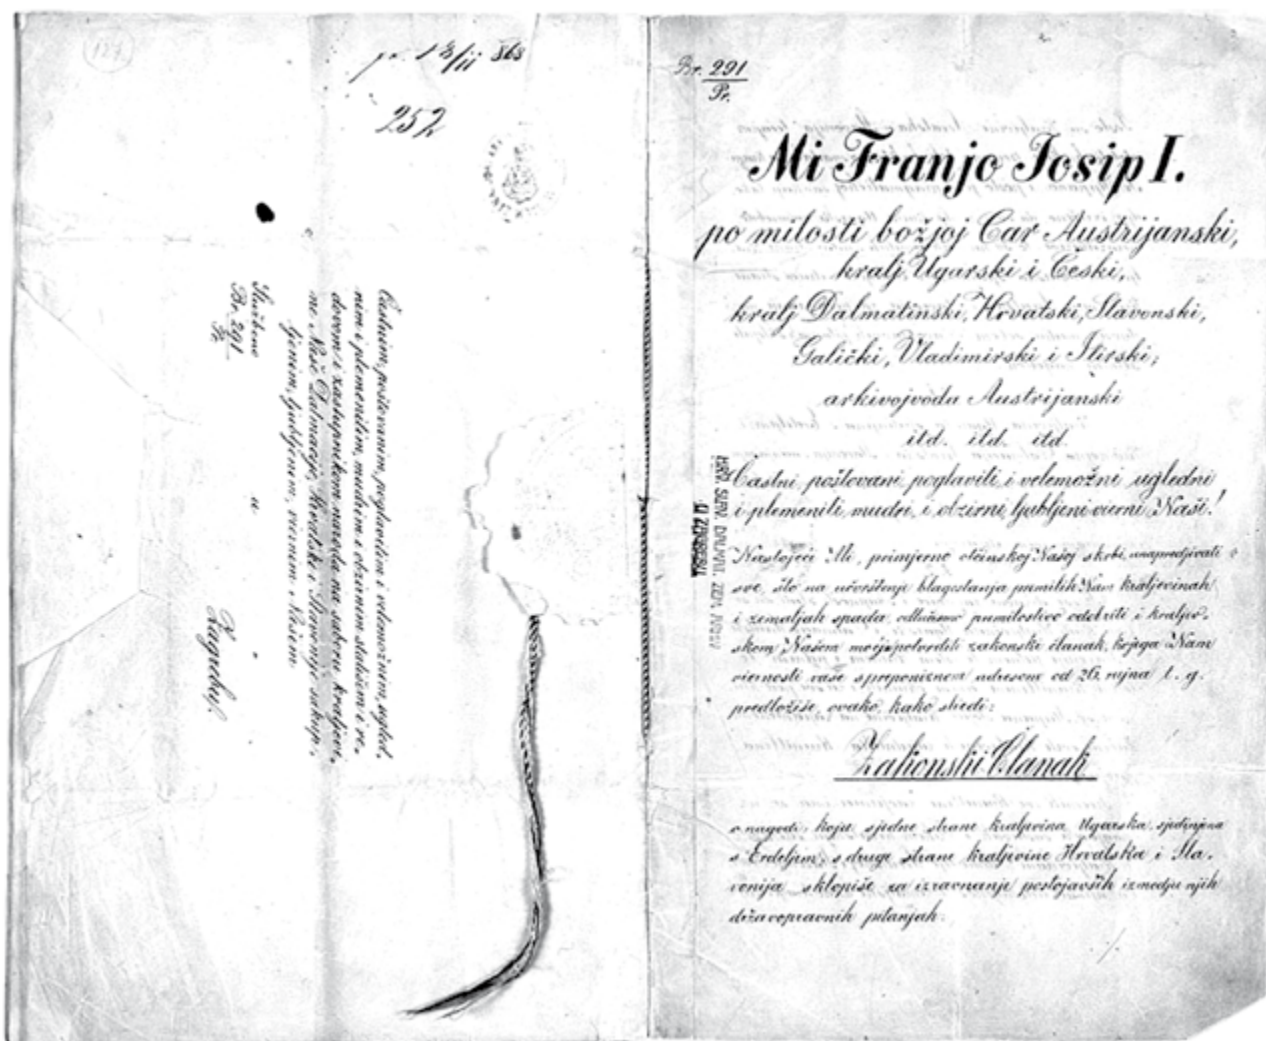 127
pr. 13/11 868
252
Častnim, poštovanim, poglavitim i velemožnim, ugled-
nim i plemenitim, mudrim i obzirnim stališem i re-
dovom i zastupnikom naroda na saboru kraljevi-
ne Naše Dalmacije, Hrvatske i Slavonije sakup-
ljenim, ljubljenim, viernim Našim.
Službeno
Br. 291
Pr.
u
Zagrebu.
Br. 291
Pr.
Mi Franjo Josip I.
po milosti božjoj Car Austrijanski,
kralj Ugarski i Česki,
kralj Dalmatinski, Hrvatski, Slavonski,
Galički, Vladimirski i Ilirski;
arkivojvoda Austrijanski
itd. itd. itd.
Častni, poštovani, poglaviti i velemožni, ugledni
i plemeniti, mudri, i obzirni, ljubljeni vierni Naši!
Nastojeći Mi, primjerno otčinskoj Našoj skrbi, unapredjivati
sve, što na učvrštenje blagostanja premilih Nam kraljevinah
i zemaljah spada, odlučismo premilostivo odobriti i kraljev-
skom Našom potvrditi zakonski članak, kojega Nam
viernosti vaše s preponiznom adresom od 26. rujna t. g.
predložiše, ovako, kako sliedi:
Zakonski Članak
o nagodi, koju s jedne strane kraljevina Ugarska, sjedinjena
s Erdeljem, s druge strane kraljevine Hrvatska i Sla-
vonija sklopiše za izravnanje postojavših izmedju njih
državopravnih pitanjah.